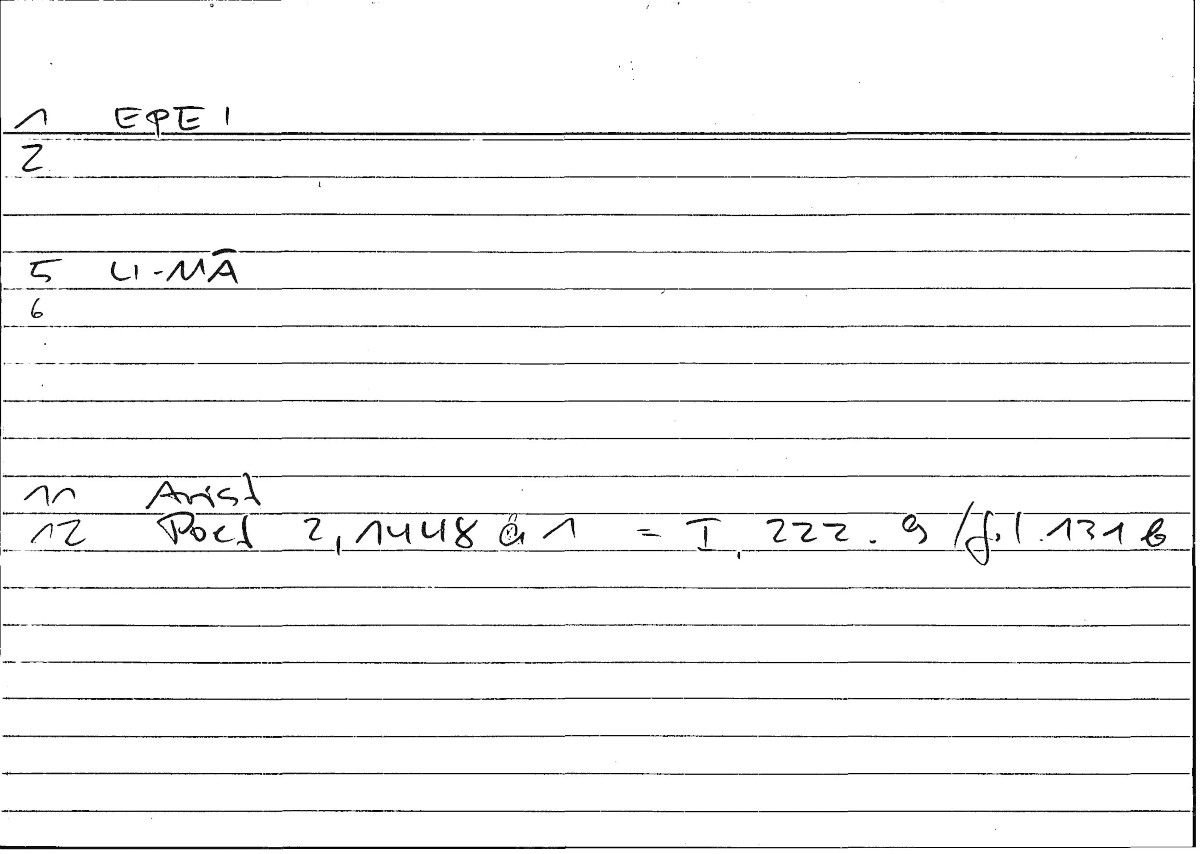 1 ΕΦΕΙ
2
5 LI-MĀ
6
11 Arist
12 Poet 2, 1448 a 1 = I, 222. 9 / fol. 131 b